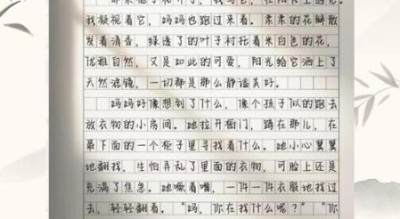 我凝视着它，妈妈也跑过来看。柔柔的花瓣散
发着清香，绿透了的叶子衬托着米白色的花，
优雅自然，又是如此的可爱，阳光给它洒上了
天然滤镜，一切都是那么静谧美好。
妈妈好像想到了什么，像个孩子似的跑去
放衣物的小房间。她拉开橱门，蹲在那儿，在
最下面的一个柜子里寻找着什么。她小心翼翼
地翻找，生怕弄乱了里面的衣物，可脸上还是
充满了焦急。她噘着嘴，一件一件衣服地找过
去，轻轻翻看。“妈，你在找什么呢？”“你